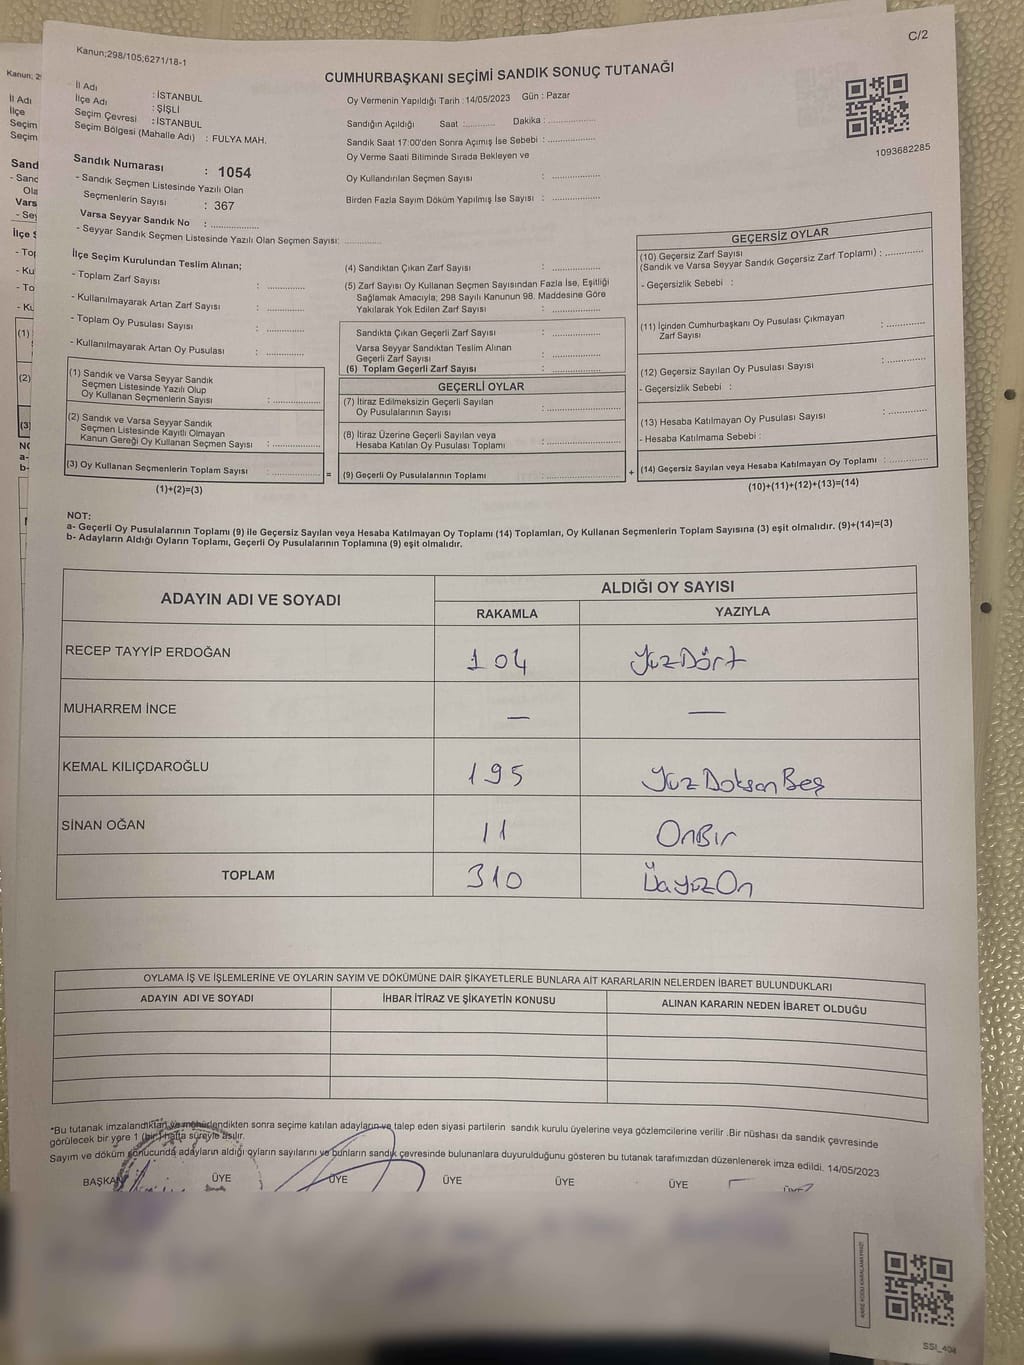 C/2
Kanun;298/105;6271/18-1
CUMHURBAŞKANI SEÇİMİ SANDIK SONUÇ TUTANAĞI
İl Adı : İSTANBUL
İlçe Adı : ŞİŞLİ
Seçim Çevresi : İSTANBUL
Seçim Bölgesi (Mahalle Adı) : FULYA MAH.
Sandık Numarası : 1054
- Sandık Seçmen Listesinde Yazılı Olan
Seçmenlerin Sayısı : 367
Varsa Seyyar Sandık No : ..............
- Seyyar Sandık Seçmen Listesinde Yazılı Olan Seçmen Sayısı: ............
Oy Vermenin Yapıldığı Tarih : 14/05/2023 Gün : Pazar
Sandığın Açıldığı Saat :........... Dakika : ..............
Sandık Saat 17:00'den Sonra Açımış İse Sebebi : ..............
Oy Verme Saati Bitiminde Sırada Bekleyen ve
Oy Kullandırılan Seçmen Sayısı : ..............
Birden Fazla Sayım Döküm Yapılmış İse Sayısı : ..............
1093682285
İlçe Seçim Kurulundan Teslim Alınan;
- Toplam Zarf Sayısı : ............
- Kullanılmayarak Artan Zarf Sayısı : ............
- Toplam Oy Pusulası Sayısı : ............
- Kullanılmayarak Artan Oy Pusulası : ............
(1) Sandık ve Varsa Seyyar Sandık
Seçmen Listesinde Yazılı Olup
Oy Kullanan Seçmenlerin Sayısı : ..............
(2) Sandık ve Varsa Seyyar Sandık
Seçmen Listesinde Kayıtlı Olmayan
Kanun Gereği Oy Kullanan Seçmen Sayısı : ..............
(3) Oy Kullanan Seçmenlerin Toplam Sayısı : ..............
(1)+(2)=(3)
(4) Sandıktan Çıkan Zarf Sayısı : ..............
(5) Zarf Sayısı Oy Kullanan Seçmen Sayısından Fazla İse, Eşitliği
Sağlamak Amacıyla; 298 Sayılı Kanunun 98. Maddesine Göre
Yakılarak Yok Edilen Zarf Sayısı : ..............
Sandıkta Çıkan Geçerli Zarf Sayısı : ..............
Varsa Seyyar Sandıktan Teslim Alınan
Geçerli Zarf Sayısı : ..............
(6) Toplam Geçerli Zarf Sayısı : ..............
GEÇERLİ OYLAR
(7) İtiraz Edilmeksizin Geçerli Sayılan
Oy Pusulalarının Sayısı : ..............
(8) İtiraz Üzerine Geçerli Sayılan veya
Hesaba Katılan Oy Pusulası Toplamı : ..............
= (9) Geçerli Oy Pusulalarının Toplamı : ..............
GEÇERSİZ OYLAR
(10) Geçersiz Zarf Sayısı
(Sandık ve Varsa Seyyar Sandık Geçersiz Zarf Toplamı) : ............
- Geçersizlik Sebebi :
(11) İçinden Cumhurbaşkanı Oy Pusulası Çıkmayan
Zarf Sayısı : ............
(12) Geçersiz Sayılan Oy Pusulası Sayısı : ............
- Geçersizlik Sebebi :
(13) Hesaba Katılmayan Oy Pusulası Sayısı : ............
- Hesaba Katılmama Sebebi :
+ (14) Geçersiz Sayılan veya Hesaba Katılmayan Oy Toplamı : ............
(10)+(11)+(12)+(13)=(14)
NOT:
a- Geçerli Oy Pusulalarının Toplamı (9) ile Geçersiz Sayılan veya Hesaba Katılmayan Oy Toplamı (14) Toplamları, Oy Kullanan Seçmenlerin Toplam Sayısına (3) eşit olmalıdır. (9)+(14)=(3)
b- Adayların Aldığı Oyların Toplamı, Geçerli Oy Pusulalarının Toplamına (9) eşit olmalıdır.
ADAYIN ADI VE SOYADI ALDIĞI OY SAYISI
RAKAMLA YAZIYLA
RECEP TAYYİP ERDOĞAN 104 YüzDört
MUHARREM İNCE — —
KEMAL KILIÇDAROĞLU 195 YüzDoksanBeş
SİNAN OĞAN 11 OnBir
TOPLAM 310 ÜçyüzOn
OYLAMA İŞ VE İŞLEMLERİNE VE OYLARIN SAYIM VE DÖKÜMÜNE DAİR ŞİKAYETLERLE BUNLARA AİT KARARLARIN NELERDEN İBARET BULUNDUKLARI
ADAYIN ADI VE SOYADI İHBAR İTİRAZ VE ŞİKAYETİN KONUSU ALINAN KARARIN NEDEN İBARET OLDUĞU
*Bu tutanak imzalandıktan ve mühürlendikten sonra seçime katılan adayların ve talep eden siyasi partilerin sandık kurulu üyelerine veya gözlemcilerine verilir .Bir nüshası da sandık çevresinde
görülecek bir yere 1 (bir) hafta süreyle asılır.
Sayım ve döküm sonucunda adayların aldığı oyların sayılarını ve bunların sandık çevresinde bulunanlara duyurulduğunu gösteren bu tutanak tarafımızdan düzenlenerek imza edildi. 14/05/2023
BAŞKAN ÜYE ÜYE ÜYE ÜYE ÜYE